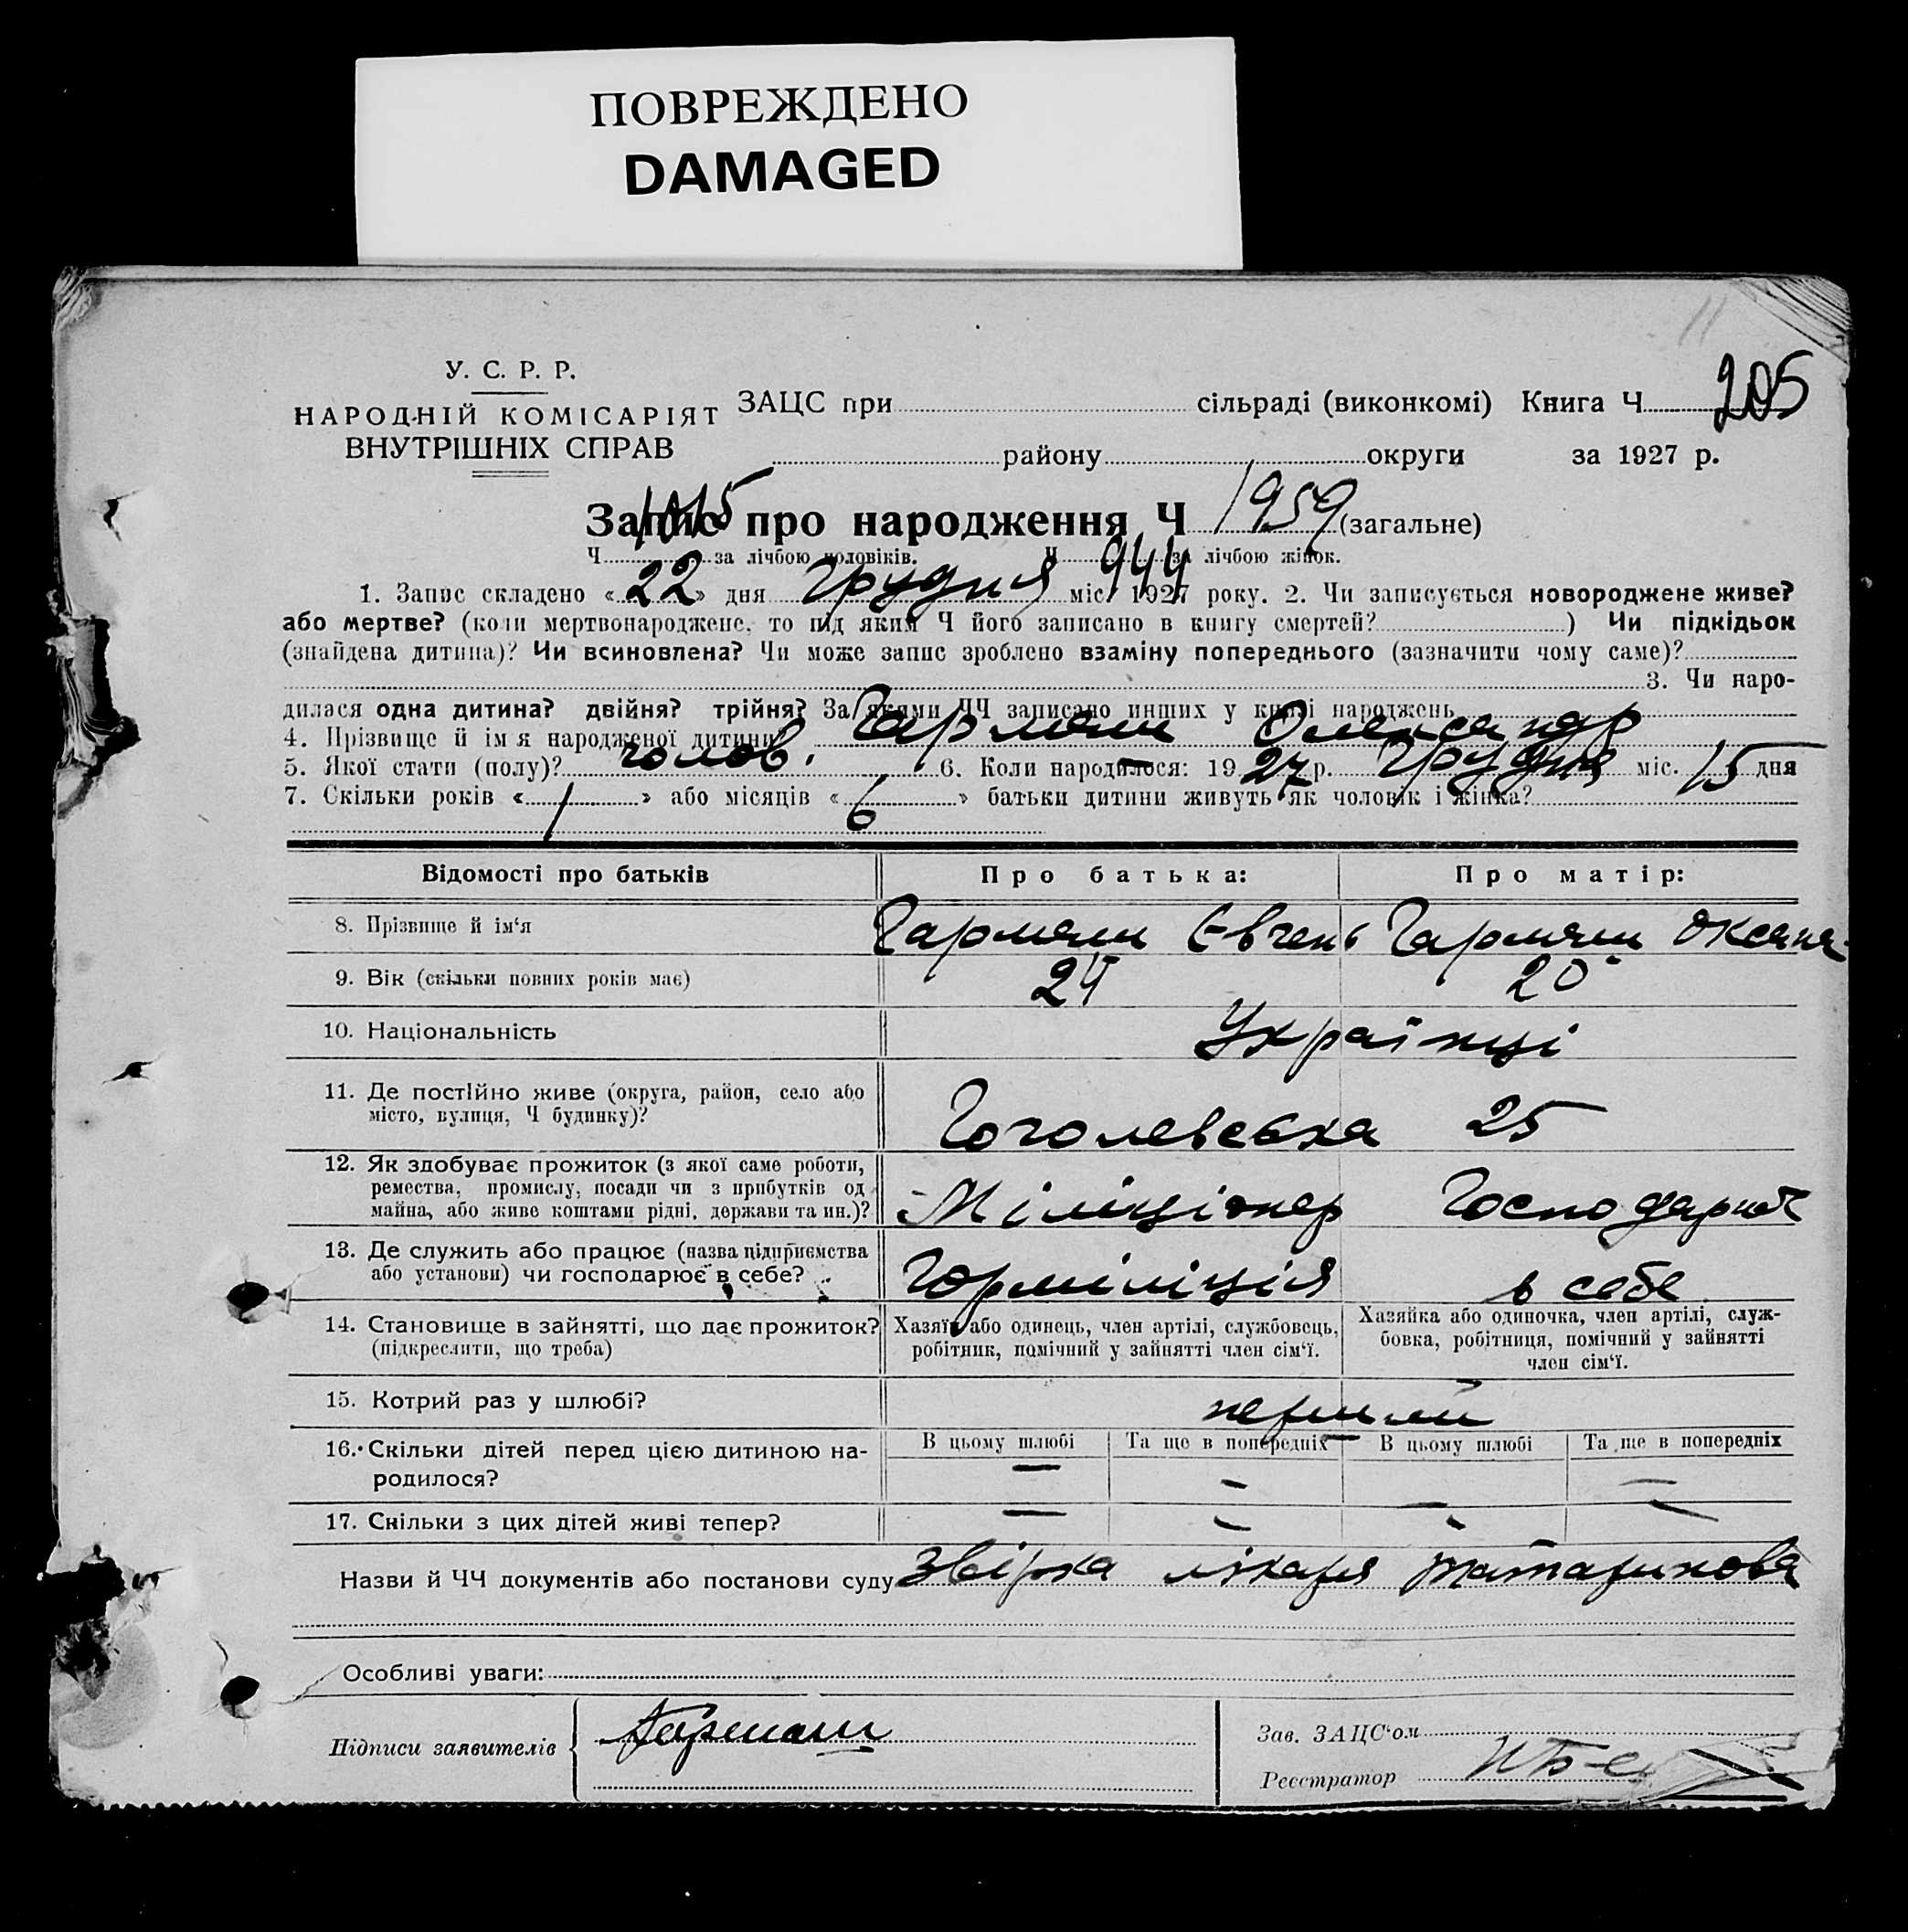 ПОВРЕЖДЕНО
DAMAGED
11
У. С. Р. Р.
НАРОДНІЙ КОМІСАРІЯТ
ВНУТРІШНІХ СПРАВ
ЗАЦС при сільраді (виконкомі) Книга Ч. 205
району округи за 1927 р.
Запис про народження Ч 1959 (загальне)
Ч 1015 за лічбою чоловіків. Ч 944 за лічбою жінок.
1. Запис складено «22» дня Грудня міс. 1927 року. 2. Чи записується новороджене живе?
або мертве? (коли мертвонароджене, то під яким Ч його записано в книгу смертей? ) Чи підкідьок
(знайдена дитина)? Чи всиновлена? Чи може запис зроблено взаміну попереднього (зазначити чому саме)?
3. Чи наро-
дилася одна дитина? двійня? трійня? За якими ЧЧ записано инших у книзі народжень
4. Прізвище й імя народженої дитини Гармаш Олександр
5. Якої стати (полу)? чолов. 6. Коли народилося: 1927 р. Грудня міс. 15 дня
7. Скільки років «1» або місяців «6» батьки дитини живуть як чоловік і жінка?
Відомості про батьків Про батька: Про матір:
8. Прізвище й ім‘я Гармаш Євгень Гармаш Оксана
9. Вік (скільки повних років має) 24 20
10. Національність Українці
11. Де постійно живе (округа, район, село або
місто, вулиця, Ч будинку)? Гоголевська 25
12. Як здобуває прожиток (з якої саме роботи,
ремества, промислу, посади чи з прибутків од
майна, або живе коштами рідні, держави та ин.)? Міліціонер
13. Де служить або працює (назва підприємства
або установи) чи господарює в себе? Гормиліція в себе
14. Становище в зайнятті, що дає прожиток?
(підкреслити, що треба)
Хазяїн або одинець, член артілі, службовець,
робітник, помічний у зайнятті член сім‘ї.
Хазяйка або одиночка, член артілі, служ-
бовка, робітниця, помічний у зайнятті
член сім‘ї.
15. Котрий раз у шлюбі? перший
16. Скільки дітей перед цією дитиною на-
родилося?
В цьому шлюбі Та ще в попередніх В цьому шлюбі Та ще в попередніх
— — — —
17. Скільки з цих дітей живі тепер? — — — —
Назви й ЧЧ документів або постанови суду звірка лікаря Татаринова
Особливі уваги:
Підписи заявителів Гармаш
Зав. ЗАЦС‘ом
Реєстратор